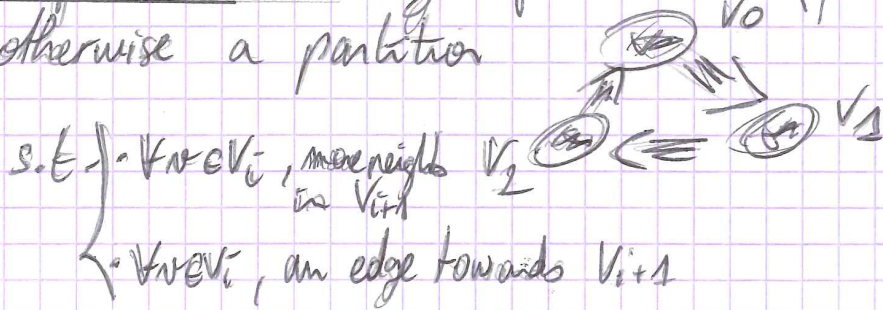 otherwise a partition
V0
V1
V2
s.t. { · ∀v∈Vi, more neighb
in Vi+1
· ∀v∈Vi, an edge towards Vi+1